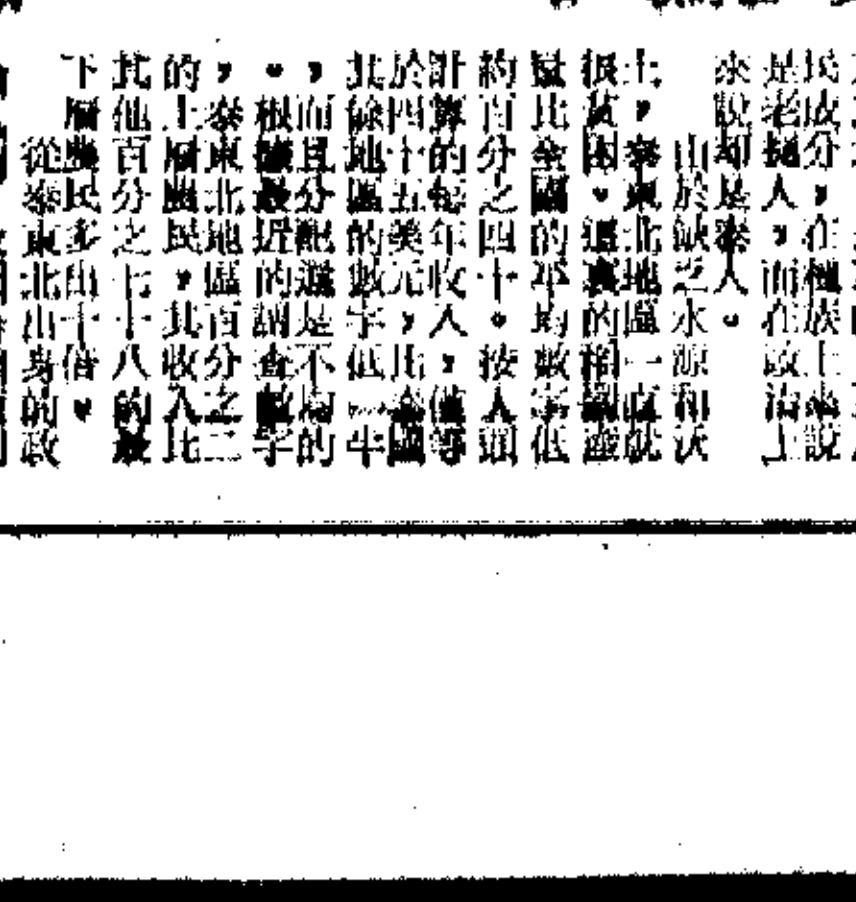 民成分，在種族上來說
是老撾人，而在政治上
來說却是泰人。
山於缺乏水源和沃
土，泰東北地區一直就
很貧困。這裏的稻穀產
量比全國的平均數字低
約百分之四十。按人頭
計算的每年收入，僅等
於四十五美元，比全國
其餘地區的數字低一半
，而且分配還是不均的
。根據最近的調查數字
，泰東北地區百分之二
的上層農民，其收入比
其他百分之七十八的最
下層農民多出十倍。
從泰東北出身的政